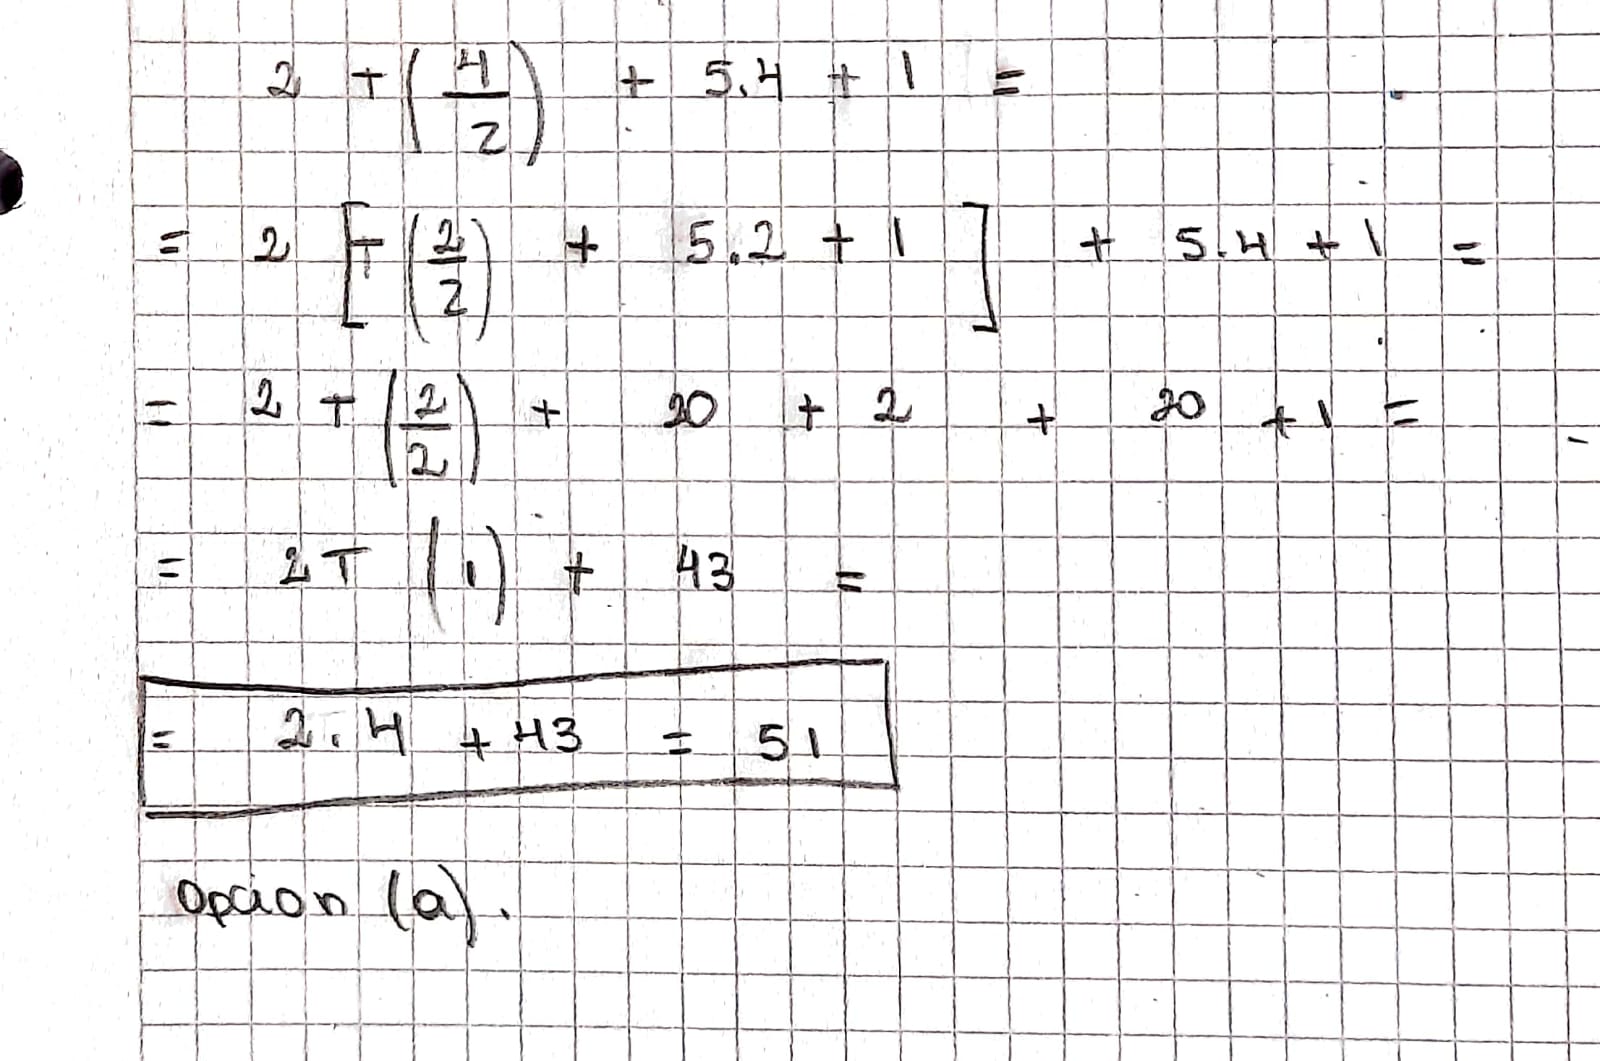 2 T (4/2) + 5.4 + 1 =
= 2 [T (2/2) + 5.2 + 1] + 5.4 + 1 =
= 2 T (2/2) + 20 + 2 + 20 + 1 =
= 2T (1) + 43 =
= 2.4 + 43 = 51
Opcion (a).